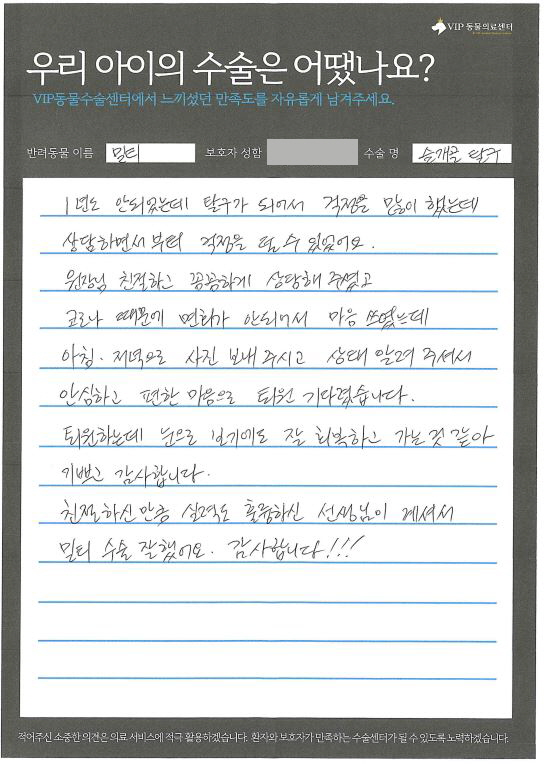 VIP 동물의료센터
우리 아이의 수술은 어땠나요?
VIP동물수술센터에서 느끼셨던 만족도를 자유롭게 남겨주세요.
반려동물 이름 밀티 보호자 성함 수술 명 슬개골 탈구
1년도 안되었는데 탈구가 되어서 걱정을 많이 했는데
상담하면서부터 걱정을 덜 수 있었어요.
원장님 친절하고 꼼꼼하게 상담해 주셨고
코로나 때문에 면회가 안되어서 마음 쓰였는데
아침·저녁으로 사진 보내 주시고 상태 알려 주셔서
안심하고 편한 마음으로 퇴원 기다렸습니다.
퇴원하는데 눈으로 보기에도 잘 회복하고 가는 것 같아
기쁘고 감사합니다.
친절하신만큼 실력도 훌륭하신 선생님이 계셔서
밀티 수술 잘했어요. 감사합니다!!!
적어주신 소중한 의견은 의료 서비스에 적극 활용하겠습니다. 환자와 보호자가 만족하는 수술센터가 될 수 있도록 노력하겠습니다.